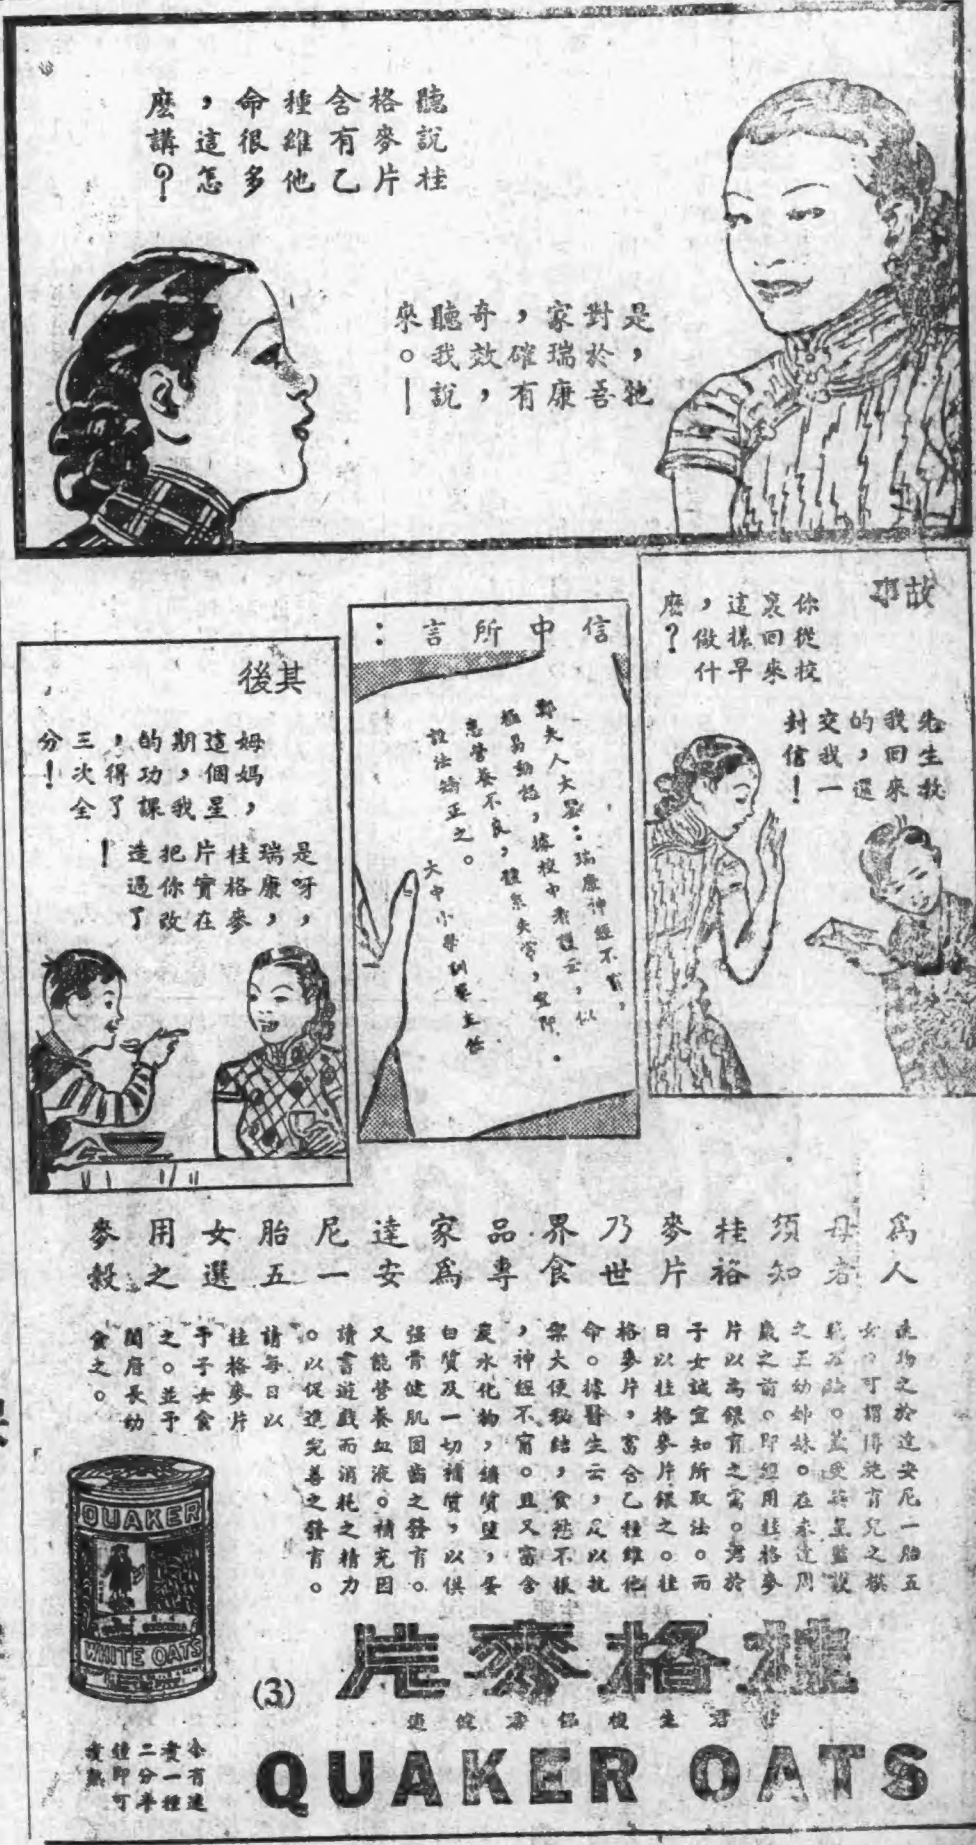 聽說桂
格麥片
含有乙
種維他
命很多
，這怎
麽講？
是，牠
對於吾
家瑞康
，確有
奇效，
聽我說
來。—
故事
你從校
裏回來
這樣早
，做什
麽？
先生教
我回來
的，還
交我一
封信！
信中所言：
鄭夫人大鑒：瑞康神經不甯，
極易動怒，據校中看護云，似
患營養不良，神系失常，望即
設法矯正之。
大中小學訓育主任
其後
姆媽，
這個星
期，我
的功課
，得了
三次全
分！
是呀，
瑞康，
桂格麥
片實在
把你改
造過了
！
爲人
母者
須知
桂格
麥片
乃世
界食
品專
家爲
達安
尼一
胎五
女選
用之
麥穀
造物之於達安尼一胎五
女。可謂得施育兒之模
範方法。並受英皇監護
之五幼姊妹。在未達周
歲之前。即經用桂格麥
片以為餵育之需。君於
子女誠宜知所取法。而
日以桂格麥片餵之。桂
格麥片，富含乙種維他
命。據醫生云，足以抗
禦大便秘結，食慾不振
，神經不甯。且又富含
炭水化物，鑛質鹽，蛋
白質及一切補質，以供
强骨健肌固齒之發育。
又能營養血液。補充因
讀書遊戲而消耗之精力
。以促進完善之發育。
請每日以
桂格麥片
予子女食
之。並予
闔府長幼
食之。
QUAKER
WHITE OATS
今有速
煑一種
二分半
鐘即可
煑熟
(3)
桂格麥片
QUAKER OATS